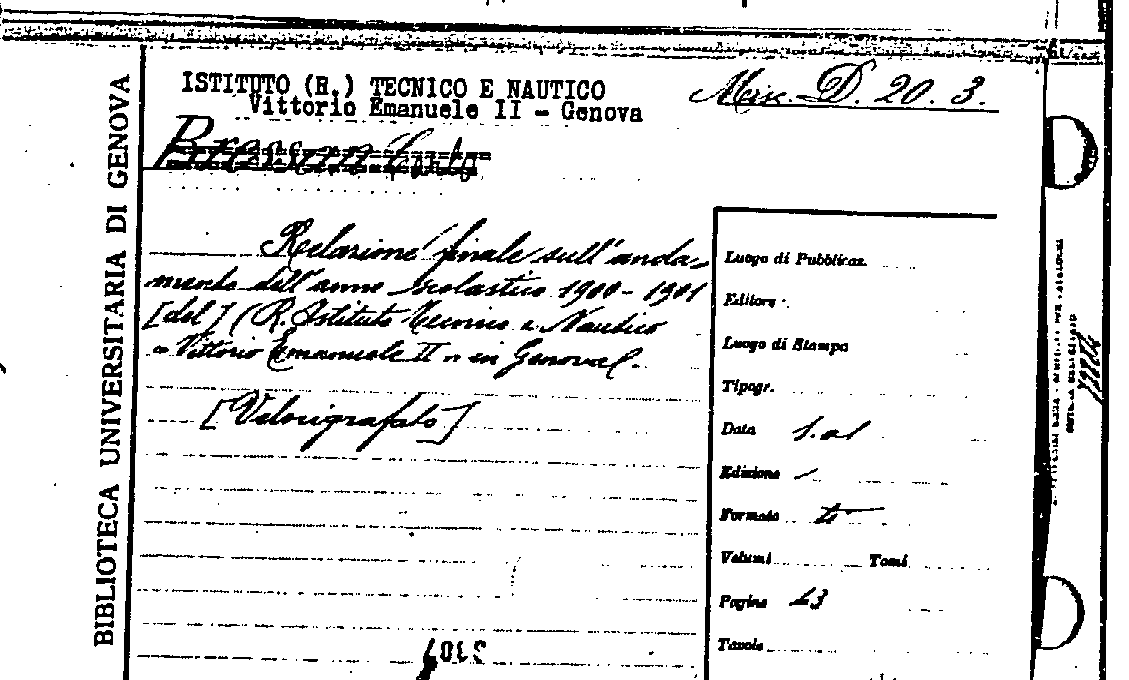 BIBLIOTECA UNIVERSITARIA DI GENOVA
ISTITUTO (R.) TECNICO E NAUTICO
Vittorio Emanuele II - Genova
Misc. D. 20. 3.
Relazione finale sull'anda-
mento dell'anno scolastico 1900-1901
[del] (R. Istituto Tecnico e Nautico
"Vittorio Emanuele II" in Genova).
[Velocigrafato]
Luogo di Pubblicaz.
Editore
Luogo di Stampa
Tipogr.
Data s.a
Edizione
Formato
Volumi Tomi
Pagine 23
Tavole